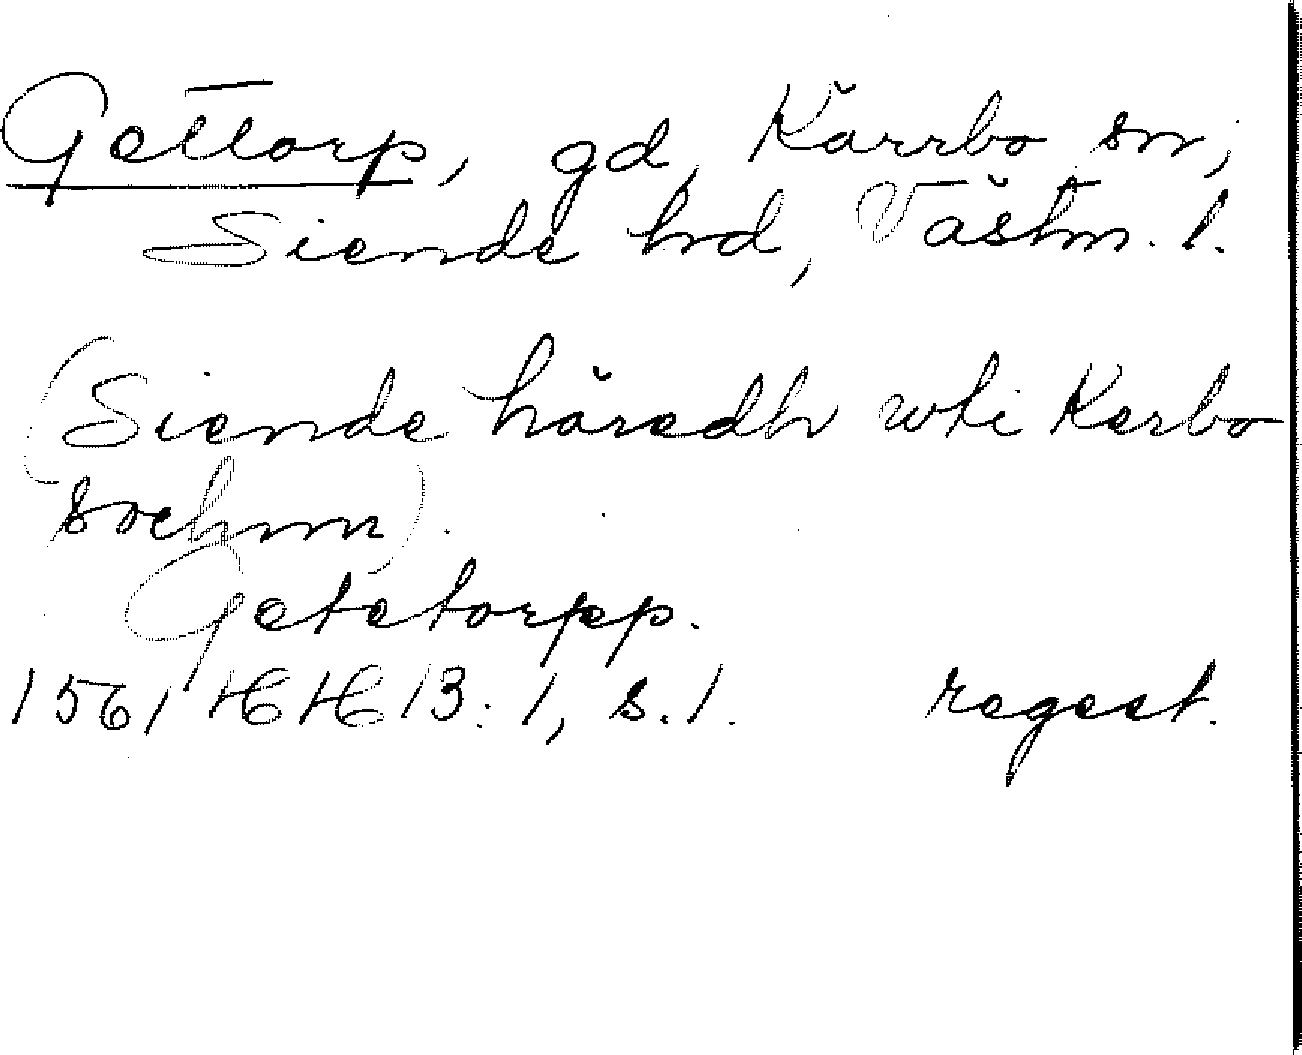 Gettorp, gd, Kärrbo sn,
Siende hd, Västm. l.
(Siende häredh wti Kerbo
sochnn).
Getetorpp.
1561 HH 13: 1, s. 1. regest.